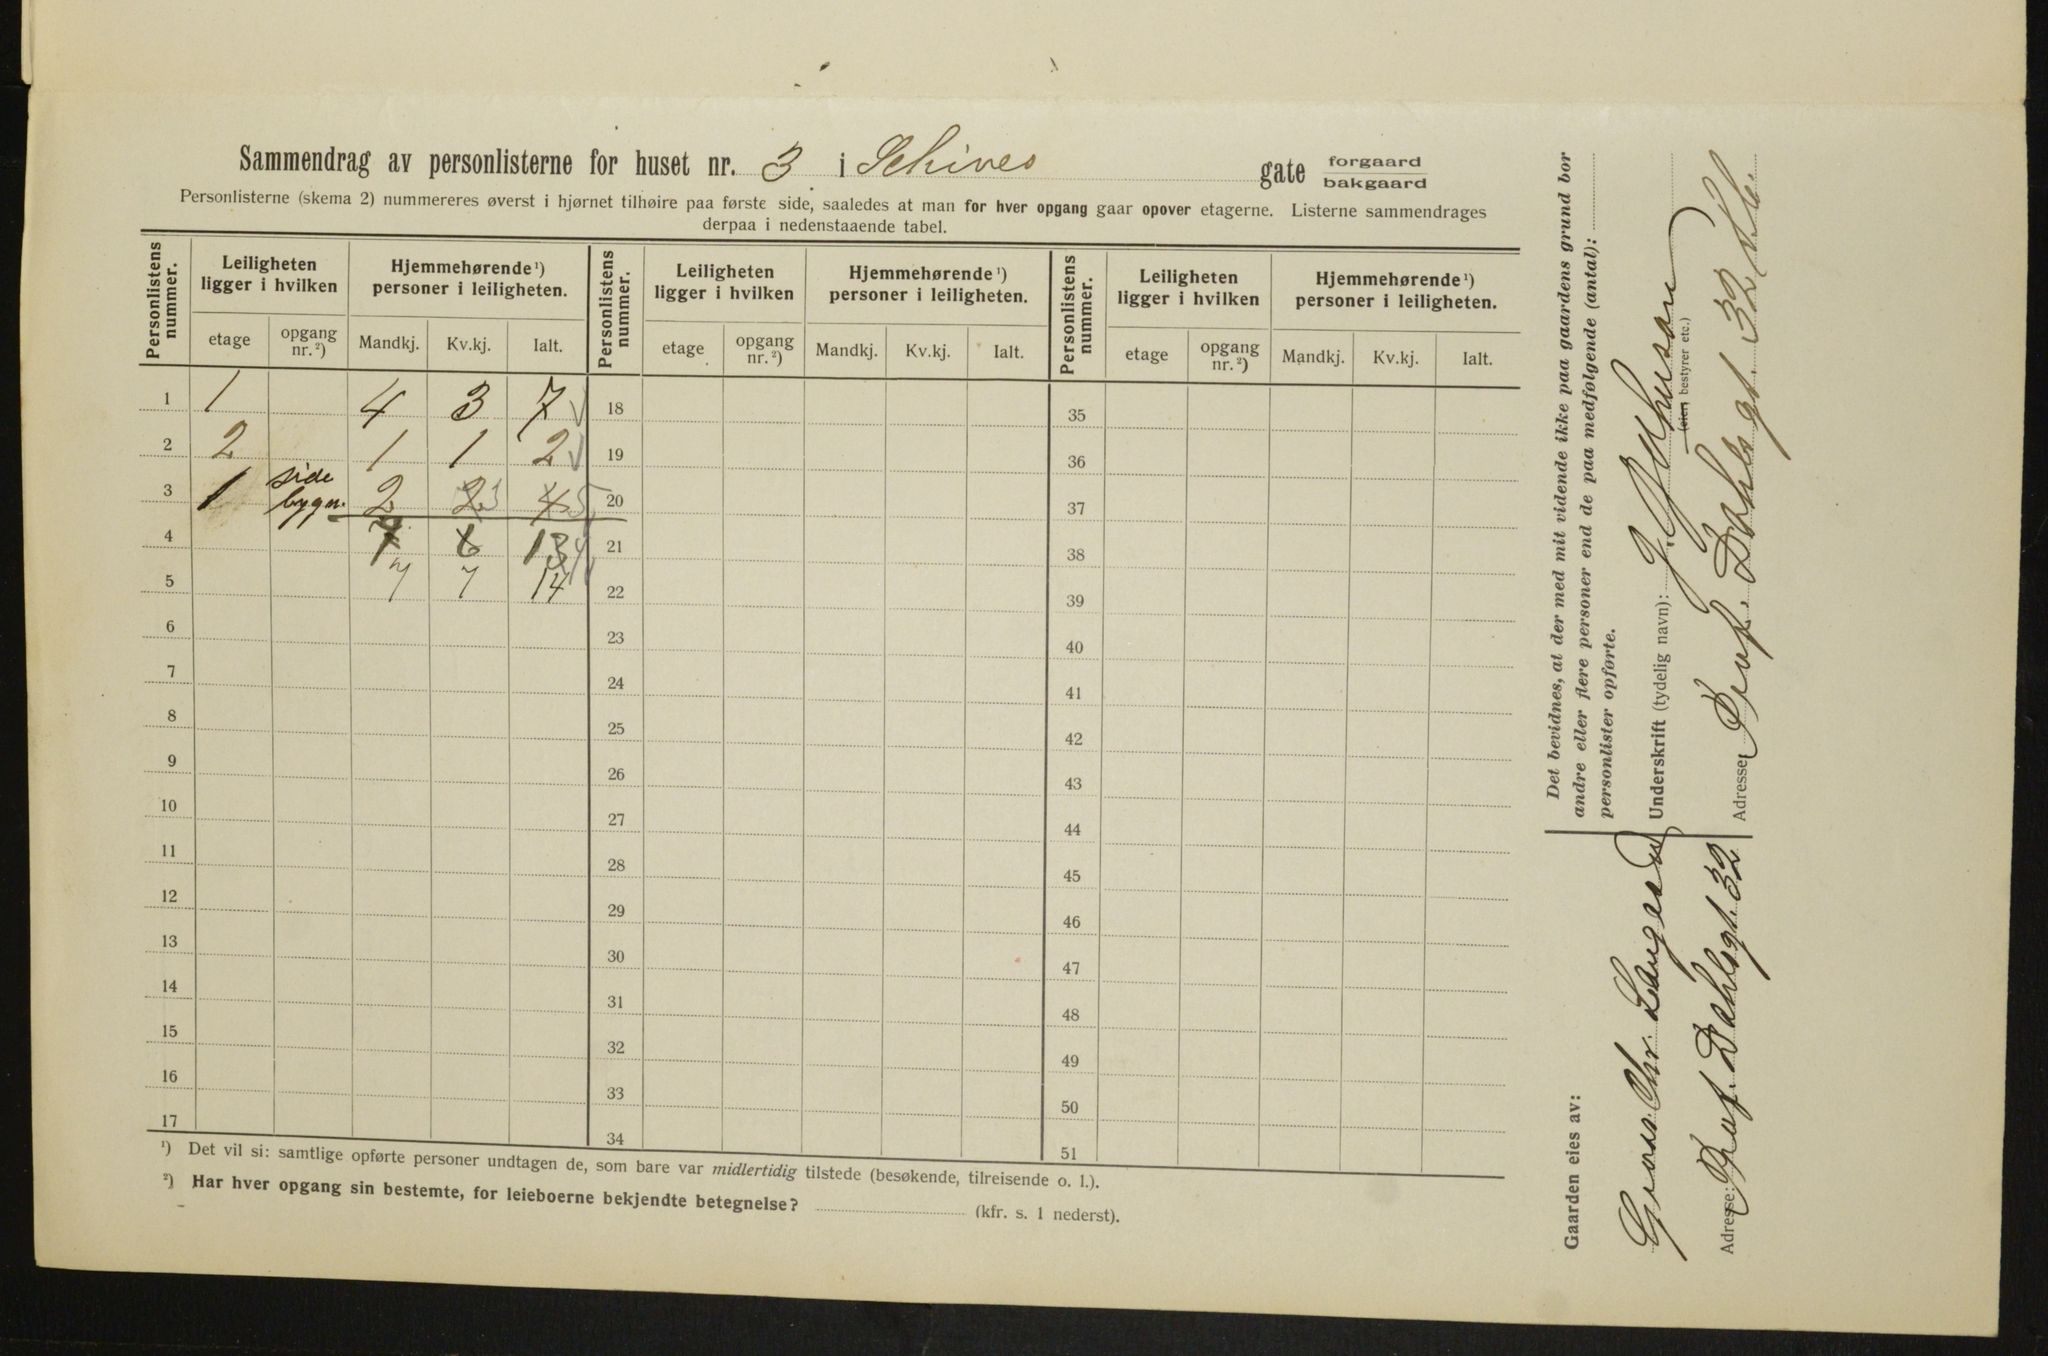 Sammendrag av personlisterne for huset nr. 3 i Schives gate forgaard
bakgaard
Personlisterne (skema 2) nummereres øverst i hjørnet tilhøire paa første side, saaledes at man for hver opgang gaar opover etagerne. Listerne sammendrages
derpaa i nedenstaaende tabel.
Personlistens nummer. Leiligheten ligger i hvilken Hjemmehørende ¹) personer i leiligheten. Personlistens nummer. Leiligheten ligger i hvilken Hjemmehørende ¹) personer i leiligheten. Personlistens nummer. Leiligheten ligger i hvilken Hjemmehørende ¹) personer i leiligheten.
etage opgang nr. ²) Mandkj. Kv.kj. Ialt. etage opgang nr. ²) Mandkj. Kv.kj. Ialt. etage opgang nr. ²) Mandkj. Kv.kj. Ialt.
1 1 4 3 7 18 35
2 2 1 1 2 19 36
3 1 side bygn. 2 2 3 4 5 20 37
4 7 6 13 21 38
5 7 7 14 22 39
6 23 40
7 24 41
8 25 42
9 26 43
10 27 44
11 28 45
12 29 46
13 30 47
14 31 48
15 32 49
16 33 50
17 34 51
¹) Det vil si: samtlige opførte personer undtagen de, som bare var midlertidig tilstede (besøkende, tilreisende o. l.).
²) Har hver opgang sin bestemte, for leieboerne bekjendte betegnelse? (kfr. s. 1 nederst).
Det bevidnes, at der med mit vidende ikke paa gaardens grund bor
andre eller flere personer end de paa medfølgende (antal):
personlister opførte.
Underskrift (tydelig navn):
(eier, bestyrer etc.)
Adresse: Prof. Dahls gt. 32
Gaarden eies av:
Chr. Langaard
Adresse: Prof. Dahls gt. 32